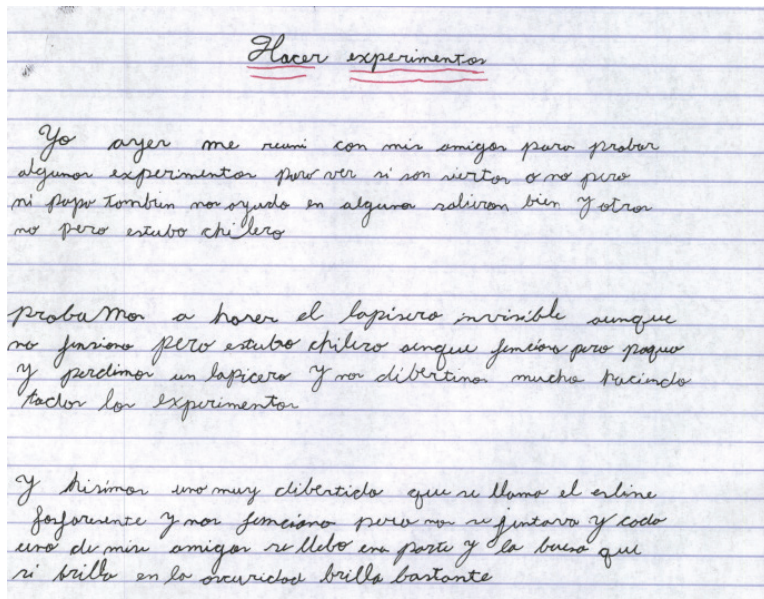 Hacer experimentos
Yo ayer me reuni con mis amigos para probar
algunos experimentos para ver si son siertos o no pero
mi papa tambien nos ayudo en algunos salieron bien y otros
no pero estubo chilero
probamos a haser el lapisero invisible aunque
no funsiono pero estubo chilero aunque funciono pero poquo
y perdimos un lapicero y nos dibertimos mucho haciendo
todos los experimentos
Y hisimos uno muy dibertido que se llama el esline
forforesente y nos funciono pero nos se juntava y cada
uno de mis amigos se llebo una parte y lo bueno que
si brilla en la oscuridad brilla bastante